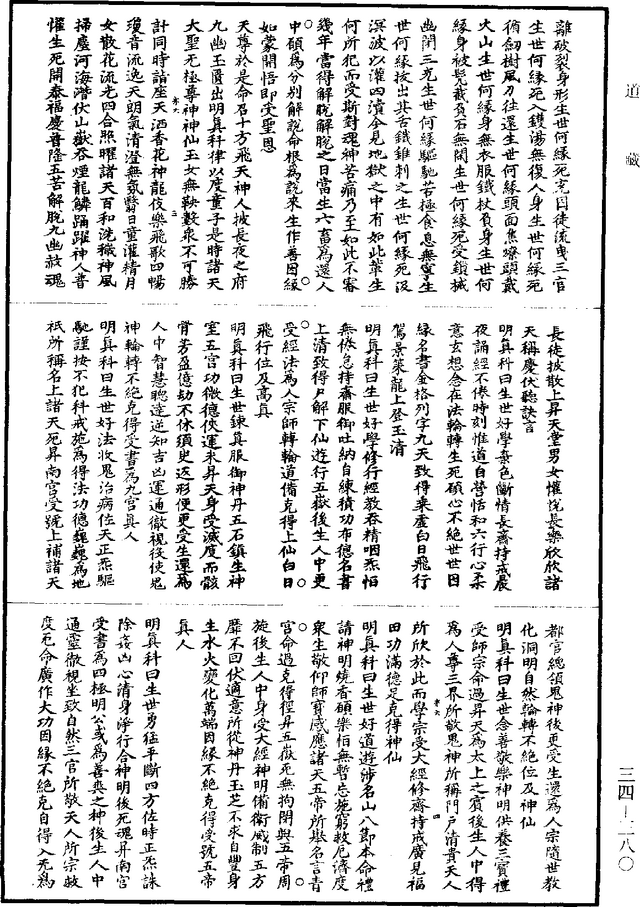 道藏
離破裂身形生世何緣死充囚徒流曳三官
生世何緣死入鑊湯無復人身生世何緣死
循劍樹風刀往還生世何緣頭面焦燎頭戴
火山生世何緣身無衣服鐵杖負身生世何
緣身被髡截負石無閒生世何緣死受鎖械
幽閉三光生世何緣驅馳苦極食息無寧生
世何緣拔出其舌鐵錐刺之生世何緣死汲
溟波以灌四瀆今見地獄之中有如此輩生
何所犯而受斯對魂神苦痛乃至如此不審
幾年當得解脫解脫之日當生六畜為還人
中願為分別解說命根為說來生作善因緣
如蒙開悟即受聖恩
天尊於是命召十方飛天神人披長夜之府
九幽玉匱出明真科律以度童子是時諸天
大聖无極尊神神仙玉女無鞅數衆不可勝
計同時詣座天洒香花神龍伎樂飛歌四暢
瓊音流逸天朗氣清澄無氛翳日童灌精月
女散花流光四合照曜諸天百和洗穢神風
掃塵河海潛伏山嶽吞煙龍鱗踊躍神人普
懽生死開泰福慶普隆五苦解脫九幽赦魂
長徒披散上昇天堂男女懽悅長樂欣欣諸
天稱慶伏聽訣言
明真科曰生世好學棄色斷情長齋持戒晨
夜誦經不倦時刻惟道自營恬和六行心柔
意玄想念在法輪轉生死願心不絕世世因
緣名書金格列字九天致得乘虛白日飛行
駕景策龍上登玉清
明真科曰生世好學修行經教吞精咽炁恒
無倦怠持齋服御吐納自練積功布德名書
上清致得尸解下仙遊行五嶽後生人中更
受經法為人宗師轉輪道備克得上仙白日
飛行位及高真
明真科曰生世鍊真服御神丹五石鎮生神
室五宮功微德俠運未昇天身受滅度而骸
骨芳盈億劫不休須臾返形便更受生還為
人中智慧聰達逆知吉凶運通徹視役使鬼
神輪轉不絕克得受書為九宮真人
明真科曰生世好法收鬼治病佐天正炁驅
馳謹按不犯科戒施為得法功德巍巍為地
祇所稱名上諸天死昇南宮受號上補諸天
都官總領鬼神後更受生還為人宗隨世教
化洞明自然輪轉不絕位及神仙
明真科曰生世念善敬樂神明供養三寶禮
受師宗命過昇天為太上之賓後生人中得
為人尊三界所敬鬼神所稱門戶清貴天人
所欣於此而學宗受大經修齋持戒廣見福
田功滿德足克得神仙
明真科曰生世好道遊涉名山八節本命禮
請神明燒香願樂栢無暫忘施窮救厄濟度
衆生敬仰師寶感應諸天五帝所舉名言青
宮命過克得徑昇五嶽死無拘閉與五帝周
旋後生人中身受大經神明備衛威制五方
靡不回伏適意所從神丹玉芝不求自豐身
生水火變化萬端因緣不絕克得受號五帝
真人
明真科曰生世勇猛平斷四方佐時正炁誅
除姦凶心清身淨行合神明後死魂昇南宮
受書為四極明公或為善爽之神後生人中
通靈徹視坐致自然三官所敬天人所宗救
度死命廣作大功因緣不絕克自得入无為
三四-三八〇